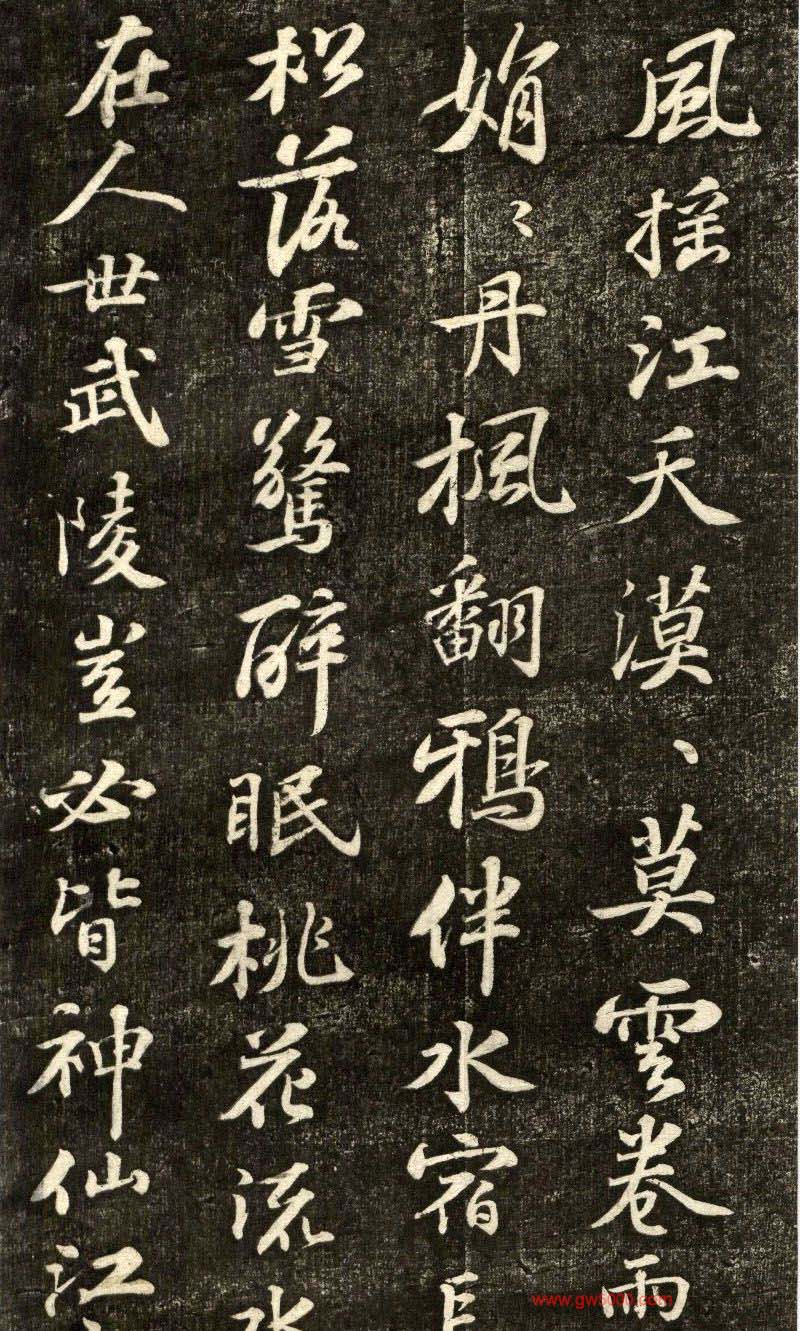 風摇江天漠、莫雲卷雨
娟〻丹楓翻鴉伴水宿
松落雪驚醉眠桃花流水
在人世武陵豈必皆神仙江
www.gw5000.com